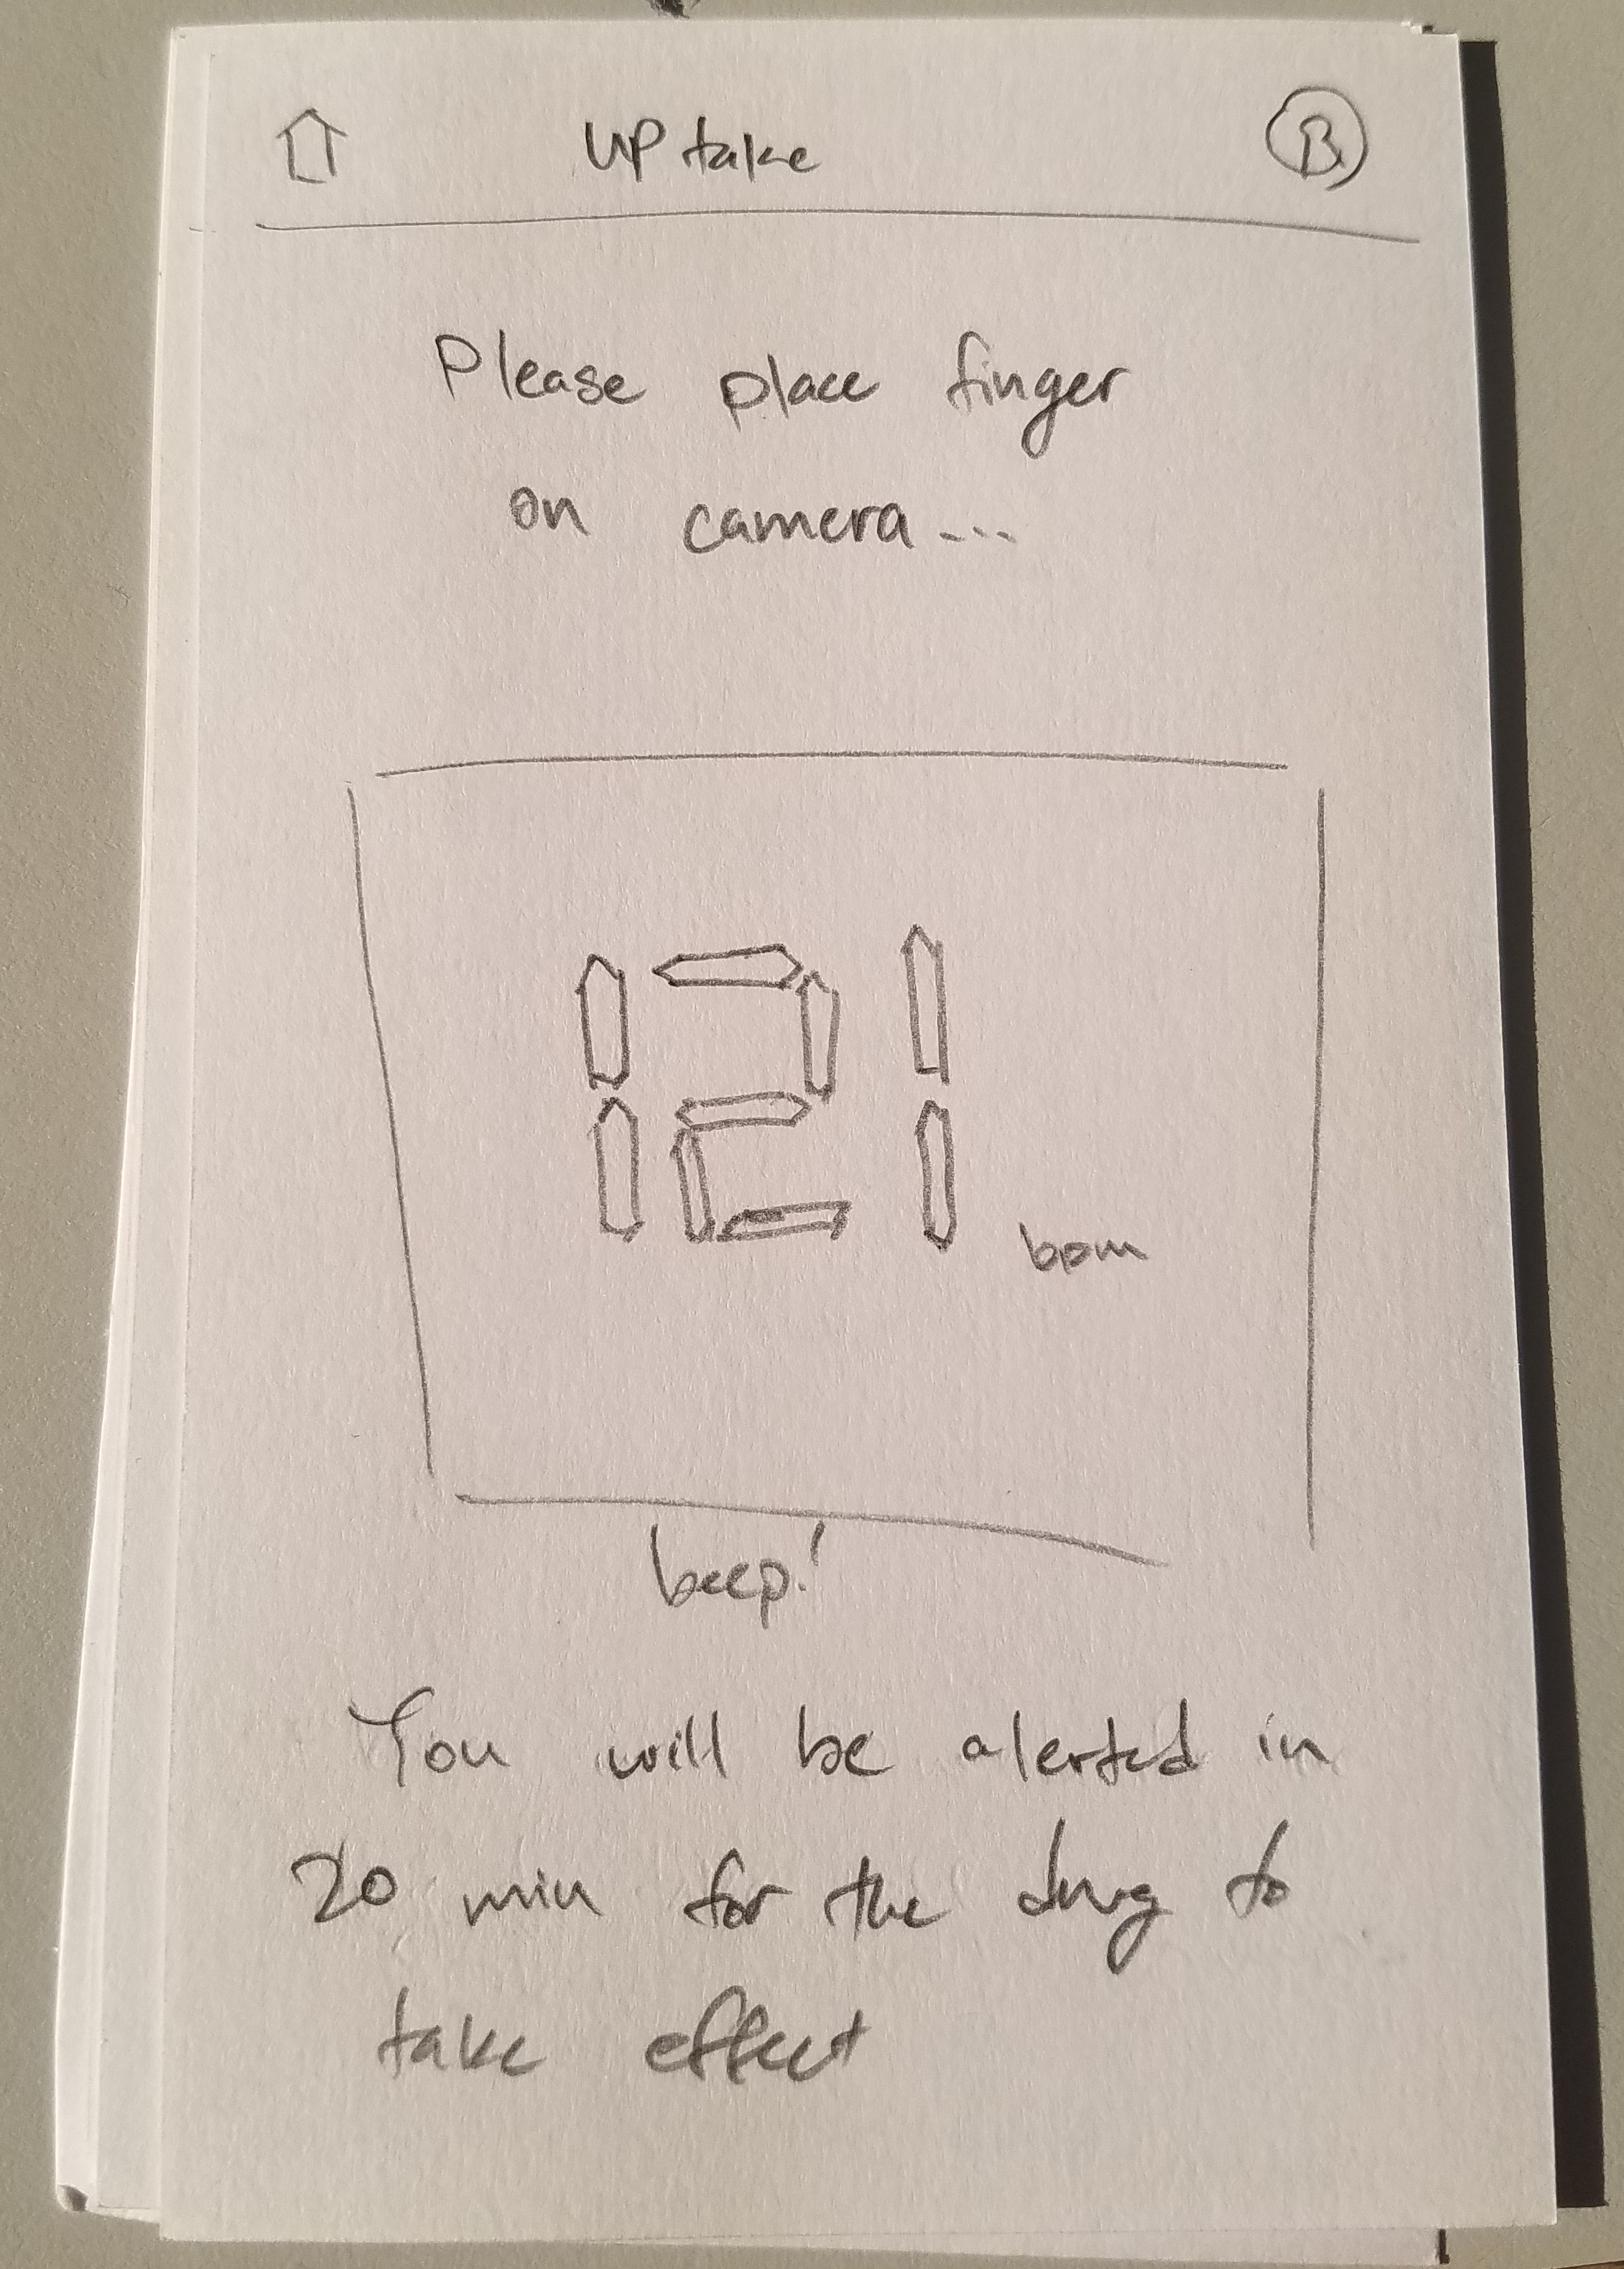 UPtake B
Please place finger
on camera...
121 bpm
beep!
You will be alerted in
20 min for the drug to
take effect